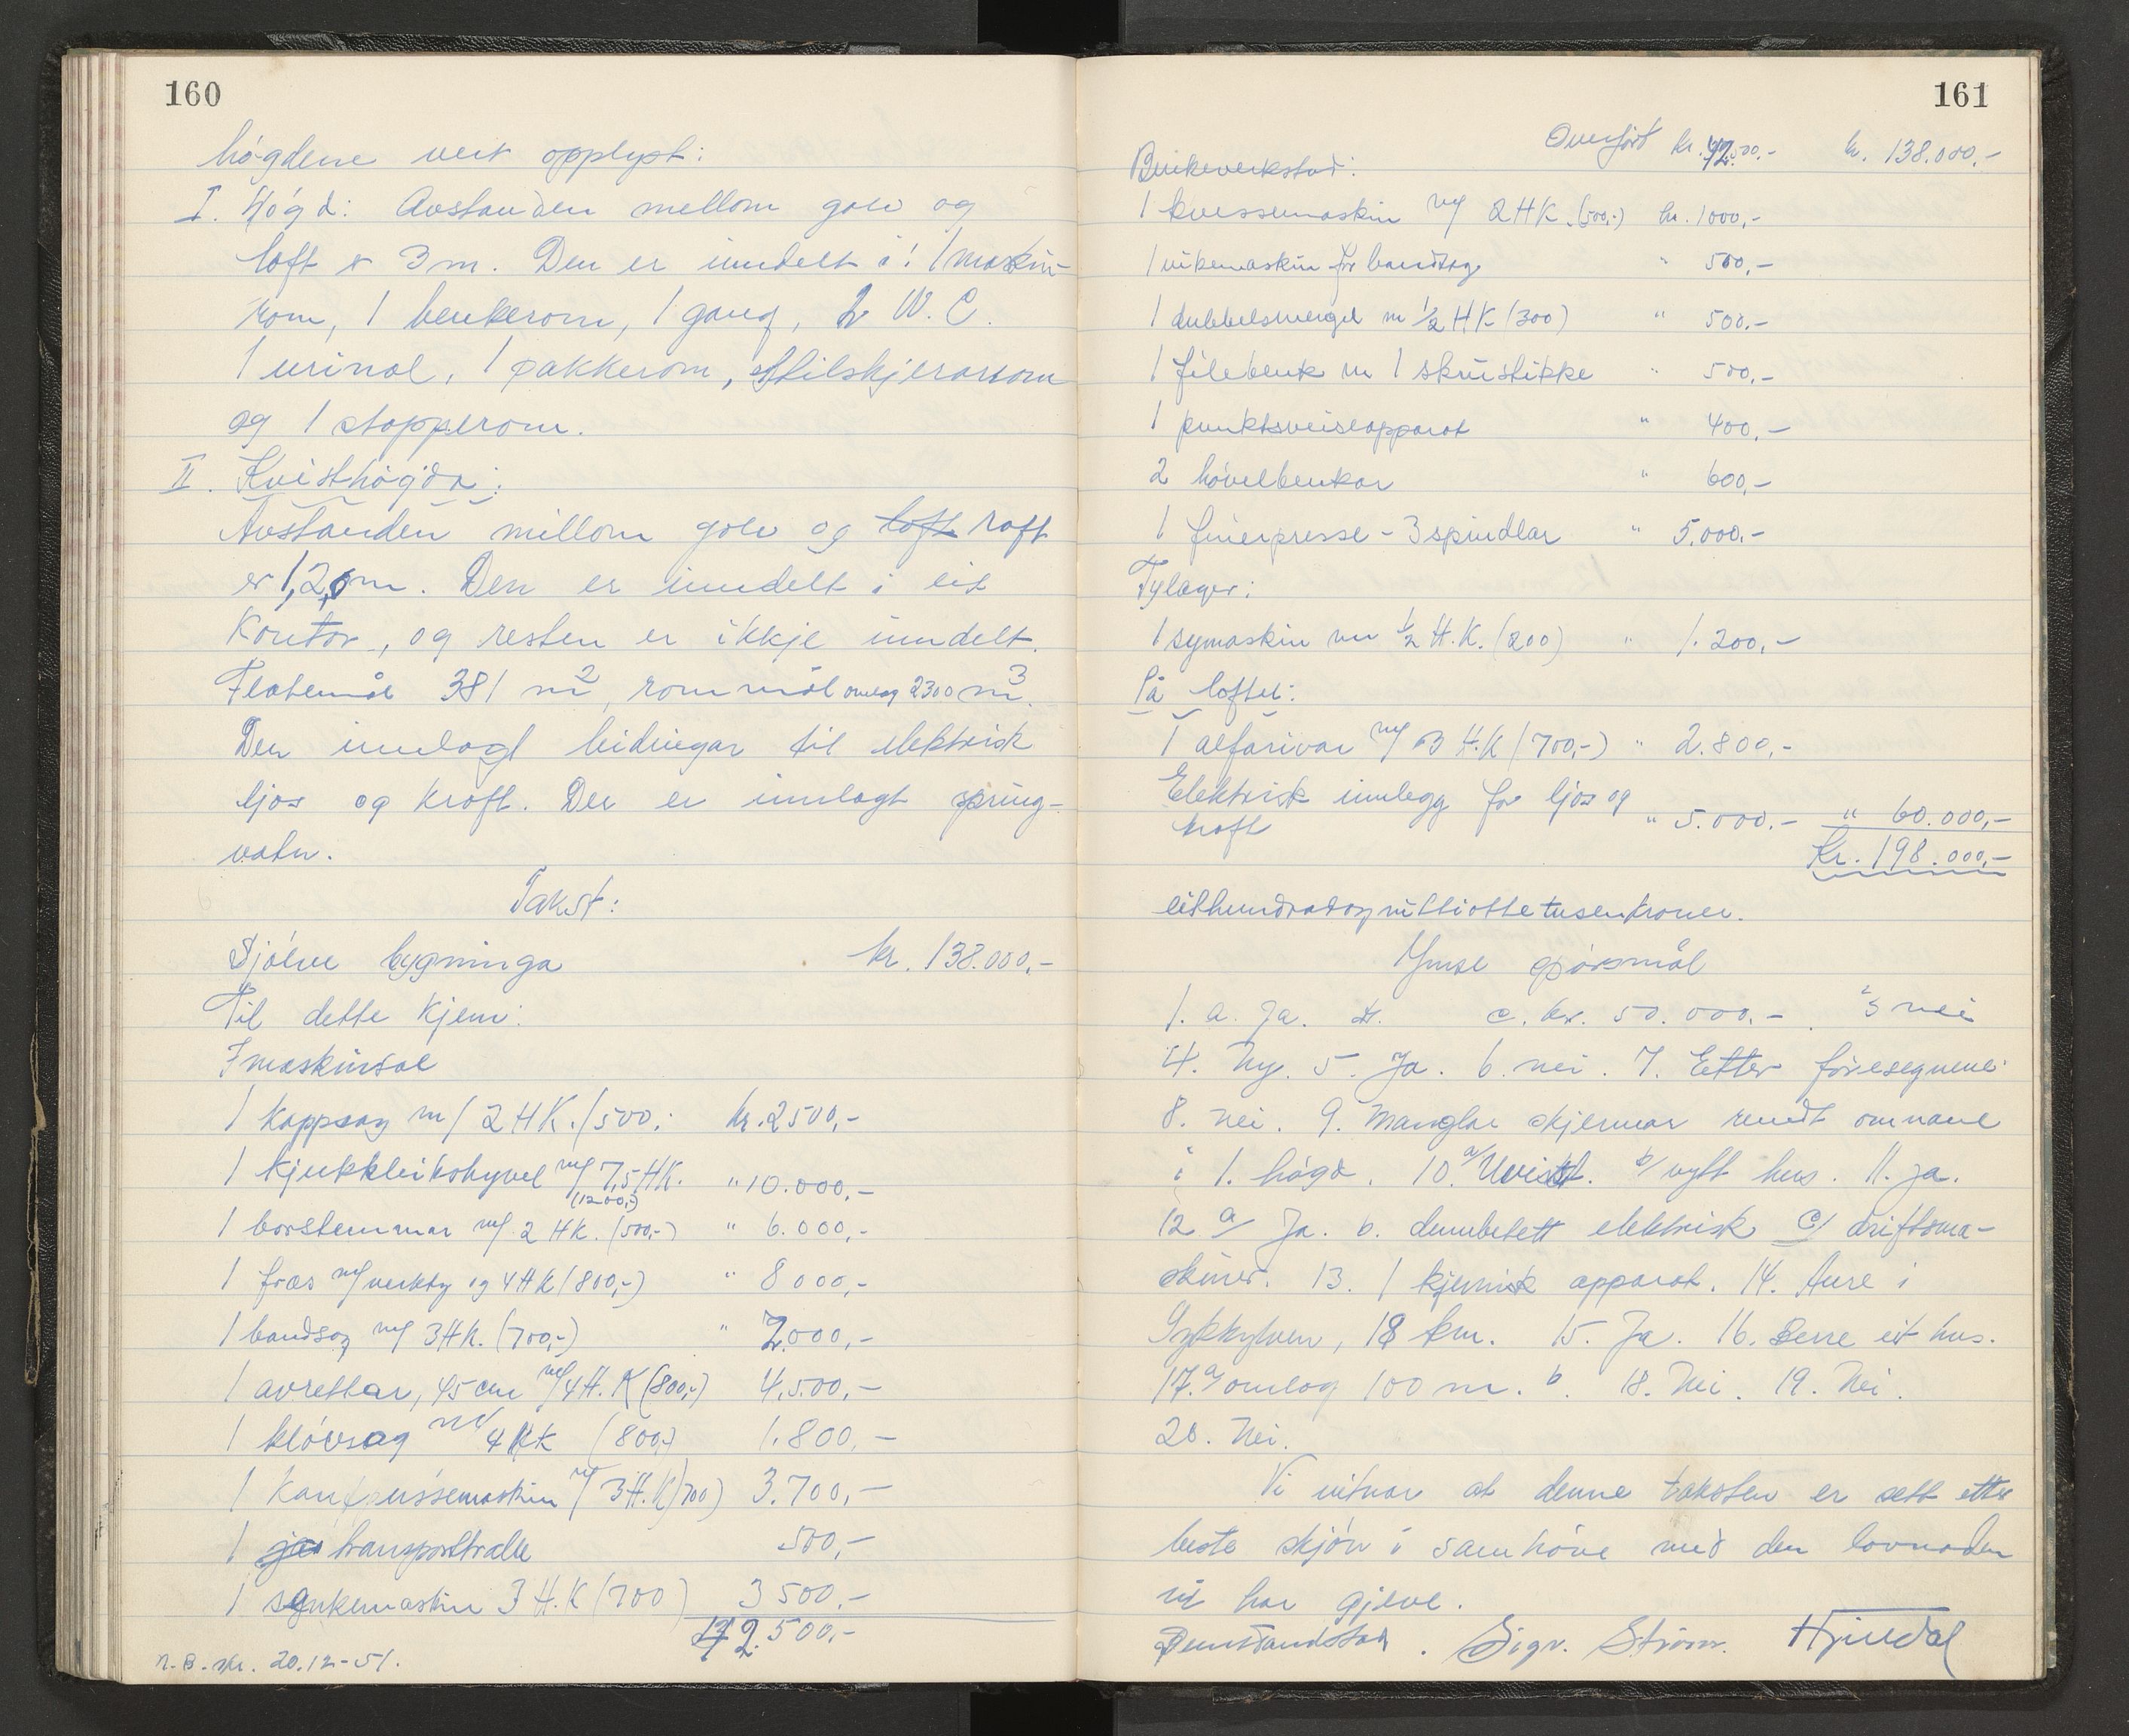 160
högdene vert opplyst:
I. Högd: Avstanden mellom golv og
loft er 3 m. Den er inndelt i: 1 maskin-
rom, 1 benkerom, 1 gang, 2 W.C.
1 urinal, 1 pakkerom, tilskjerarrom
og 1 stopperom.
II. Kvisthögda:
Avstanden millom golv og loft raft
er 1,20 m. Den er inndelt i eit
Kontor, og resten er ikkje inndelt.
Flatemål 381 m2, rommål omlag 2300 m3.
Der innlagt leidningar til elektrisk
ljos og kraft. Der er innlagt spring-
vatn.
Takst:
Sjölve bygninga kr. 138.000,-
Til dette kjem:
I maskinsal
1 kappsag m/ 2 HK. (500: kr. 2500,-
1 kjukkleikshyvel m/ 7,5 HK. " 10.000,-
(1200,-)
1 borstemmar m/ 2 HK. (500,-) " 6.000,-
1 fræs m/verkty og 4 HK (800,-) " 8000,-
1 bandsag m/ 3 HK. (700,-) " 2.000,-
1 avrettar, 45 cm m/4 H.K (800,-) 4.500,-
1 klövsag m/ 4 HK (800,-) 1.800,-
1 kantpussemaskin m/ 3 H.K (700) 3.700,-
1 transporttralle 500,-
1 senkemaskin 3 H.K (700) 3500,-
42.500,-
n.B. skr. 20.12-51.
161
Överfört kr. 42.500,- kr. 138.000,-
Benkeverkstad:
1 kvessemaskin m/ 2 HK. (500,-) kr. 1000,-
1 vikemaskin for bandsag " 500,-
1 dubbelsmergel m 1/2 HK (300) " 500.-
1 filebenk m 1 skrustikke " 500,-
1 punktsveiseapparat " 400,-
2 hövelbenkar " 600,-
1 finerpresse - 3 spindlar " 5.000.-
Tylager:
1 symaskin m 1/2 H.K. (200) " 1.200,-
På loftet:
1 alfarivar m/ 3 H.K (700,-) " 2.800,-
Elektrisk innlegg for ljos og
kraft " 5.000.- " 60.000,-
Kr. 198.000,-
eithundradognittiottetusenkroner.
Ymse spörsmål
1. a. Ja. c. kr. 50.000.-. 3 nei
4. Ny. 5. Ja. 6. nei. 7. Etter föresegnene
8. Nei. 9. Manglar skjermar rundt omnane
i 1. högd. 10. a/ Uvisst. b/ nytt hus. 11. ja.
12 a/ Ja. b. elektrisk c/ driftsma-
skiner. 13. 1 kjemisk apparat. 14. Aure i
Sykkylven, 18 km. 15. Ja. 16. Berre eit hus.
17. a/ omlag 100 m. b. 18. Nei. 19. Nei.
20. Nei.
Vi vitnar at denne taksten er sett etter
beste skjön i samhöve med den lovnaden
vi har gjeve.
Sigv. Ström. Hjindal